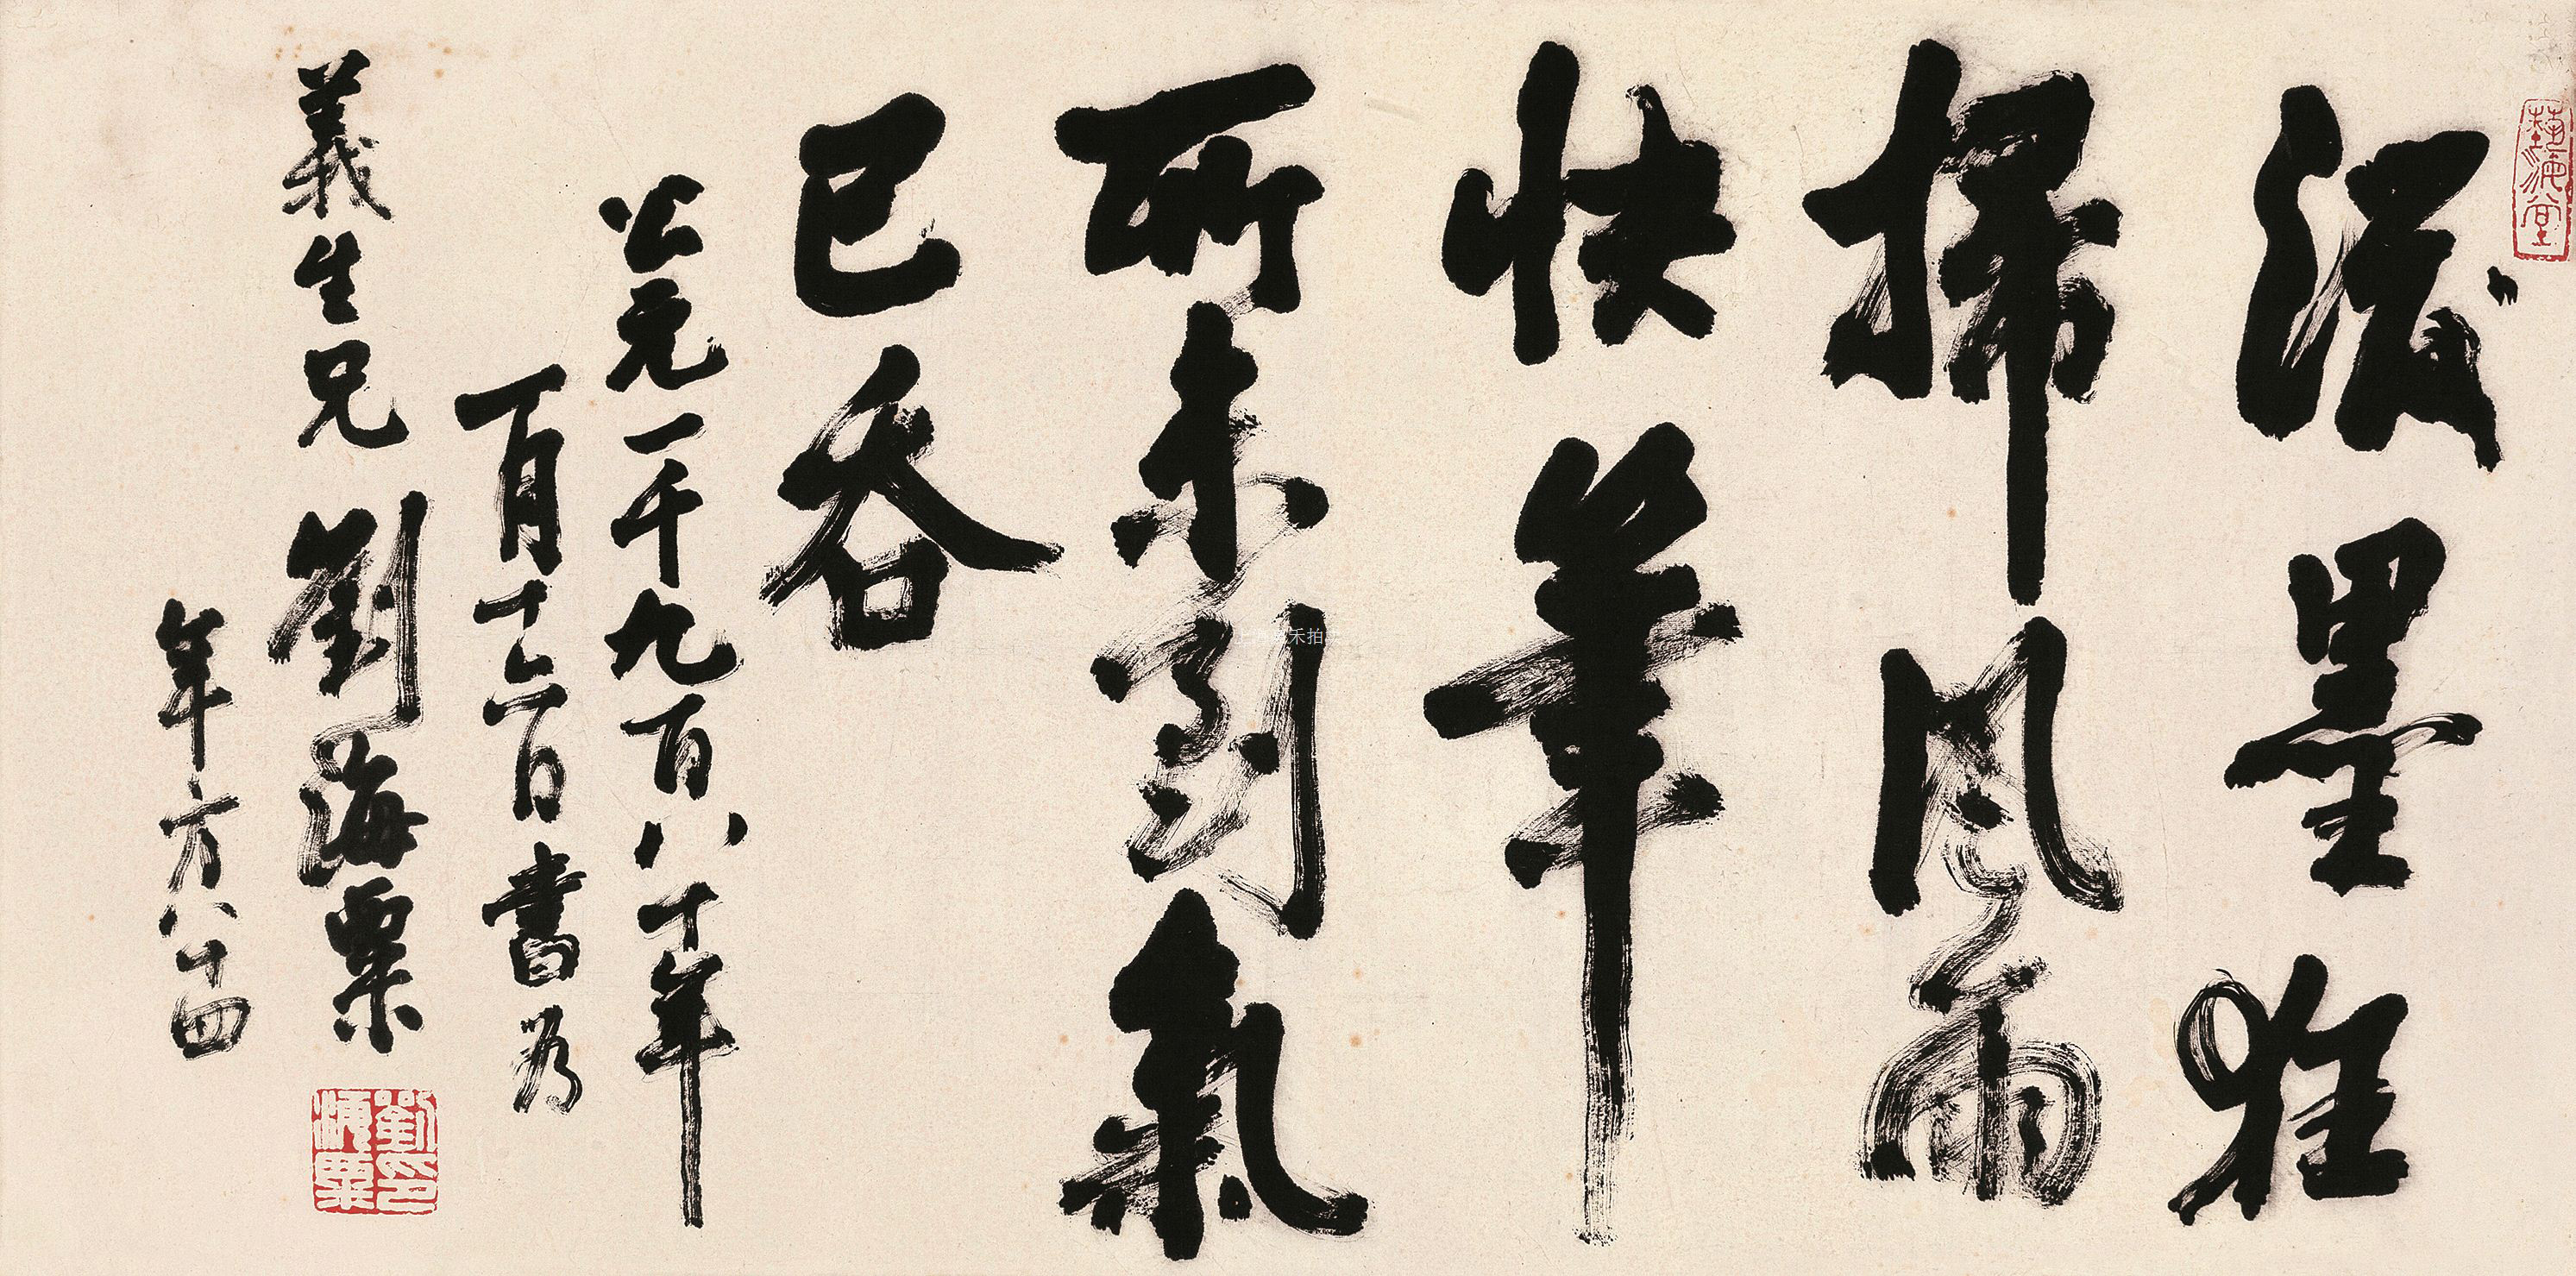 潑墨狂
掃風雨
快筆
所未到氣
已吞
公元一千九百八十年
一百月十六日書為
義生兄 劉海粟
年方八十四
藝海堂
劉海粟印